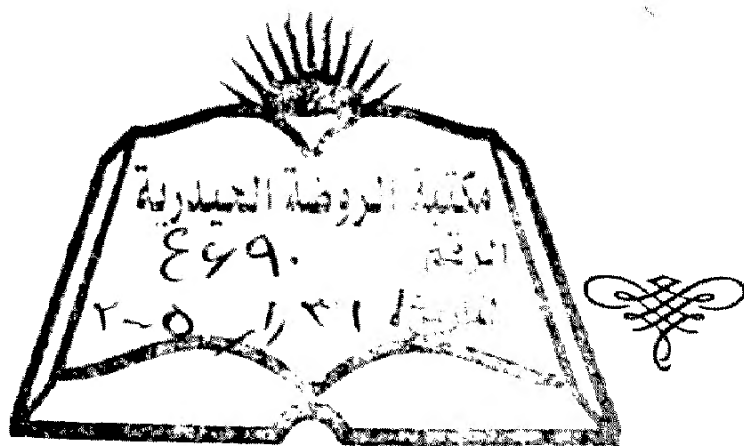 مكتبة الروضة الحيدرية
الرقم ٤٦٩٠
التاريخ